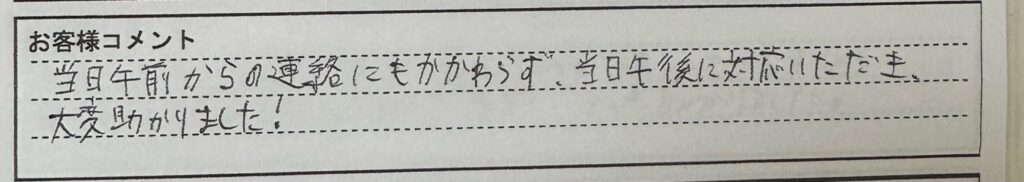 お客様コメント
当日午前からの連絡にもかかわらず、当日午後に対応いただき、
大変助かりました!